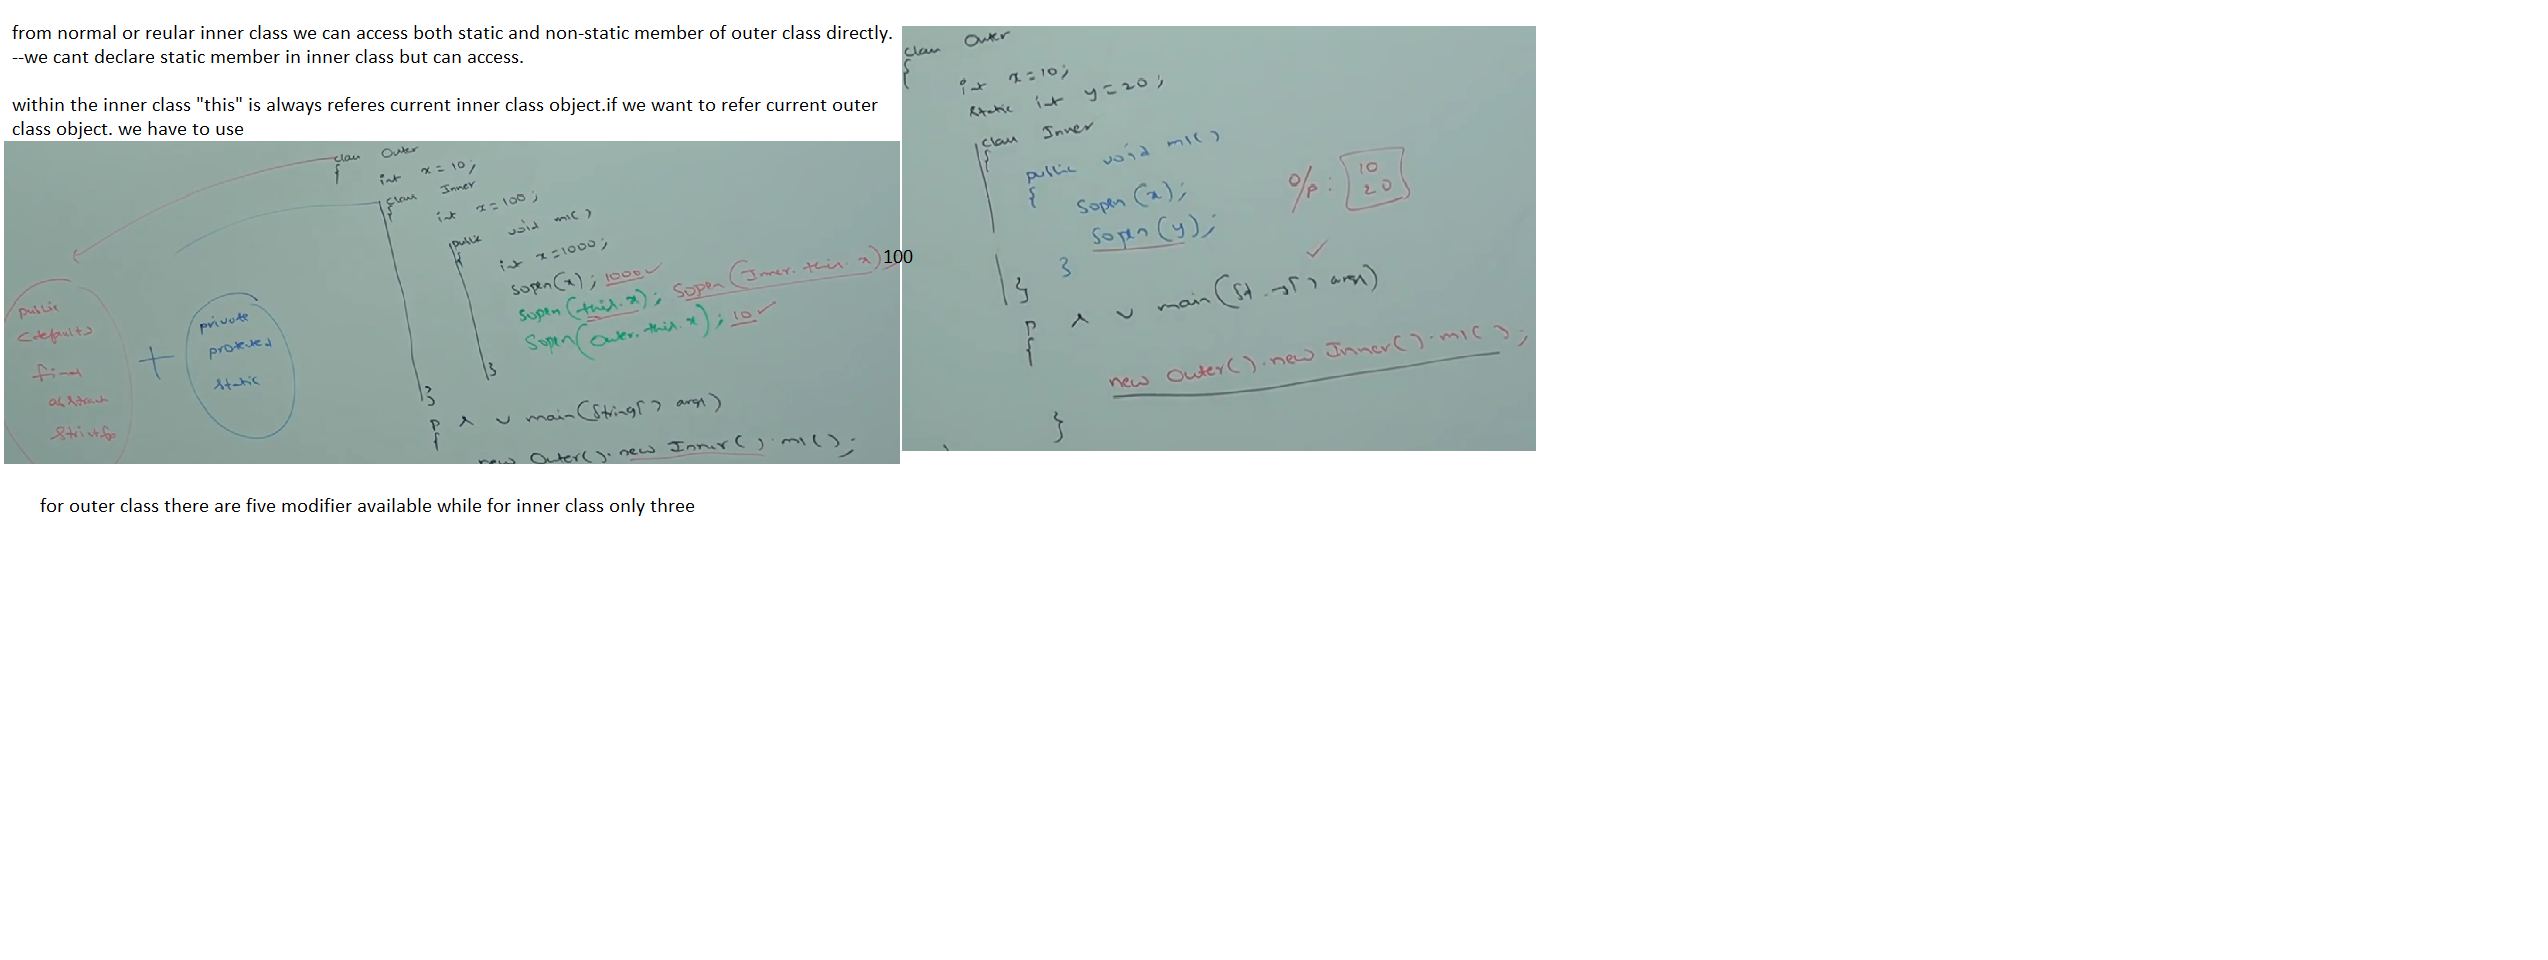 from normal or reular inner class we can access both static and non-static member of outer class directly.
--we cant declare static member in inner class but can access.
within the inner class "this" is always referes current inner class object.if we want to refer current outer
class object. we have to use
class Outer
{
int x=10;
class Inner
{
int x=100;
public void m1()
{
int x=1000;
sopln(x); 1000 ✓
sopln(this.x); sopln(Inner.this.x) 100
sopln(Outer.this.x); 10 ✓
}
}
p s v main(String[] args)
{
new Outer().new Inner().m1();
public
<default>
final
abstract
strictfp
+
private
protected
static
class Outer
{
int x=10;
static int y=20;
class Inner
{
public void m1()
{
sopln(x);
sopln(y);
}
}
o/p: 10
20
✓
p s v main(St..g[] args)
{
new Outer().new Inner().m1();
}
for outer class there are five modifier available while for inner class only three